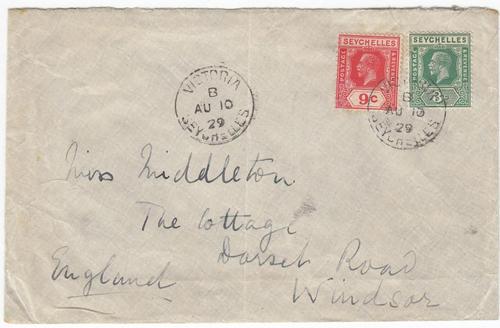 SEYCHELLES
POSTAGE & REVENUE
9c
SEYCHELLES
POSTAGE & REVENUE
VICTORIA
B
AU 10
29
SEYCHELLES
VICTORIA
B
AU 10
29
SEYCHELLES
Miss Middleton
The Cottage
Dorset Road
England
Windsor